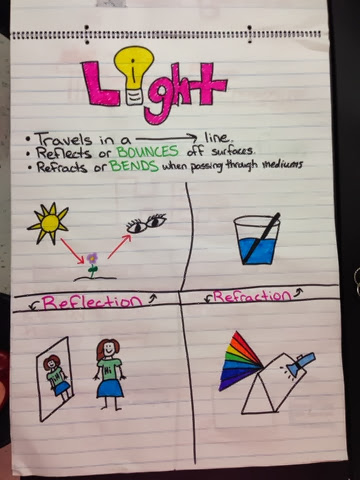 Light
• Travels in a → line.
• Reflects or BOUNCES off surfaces.
• Refracts or BENDS when passing through mediums
Reflection
Refraction
Hi
Hi